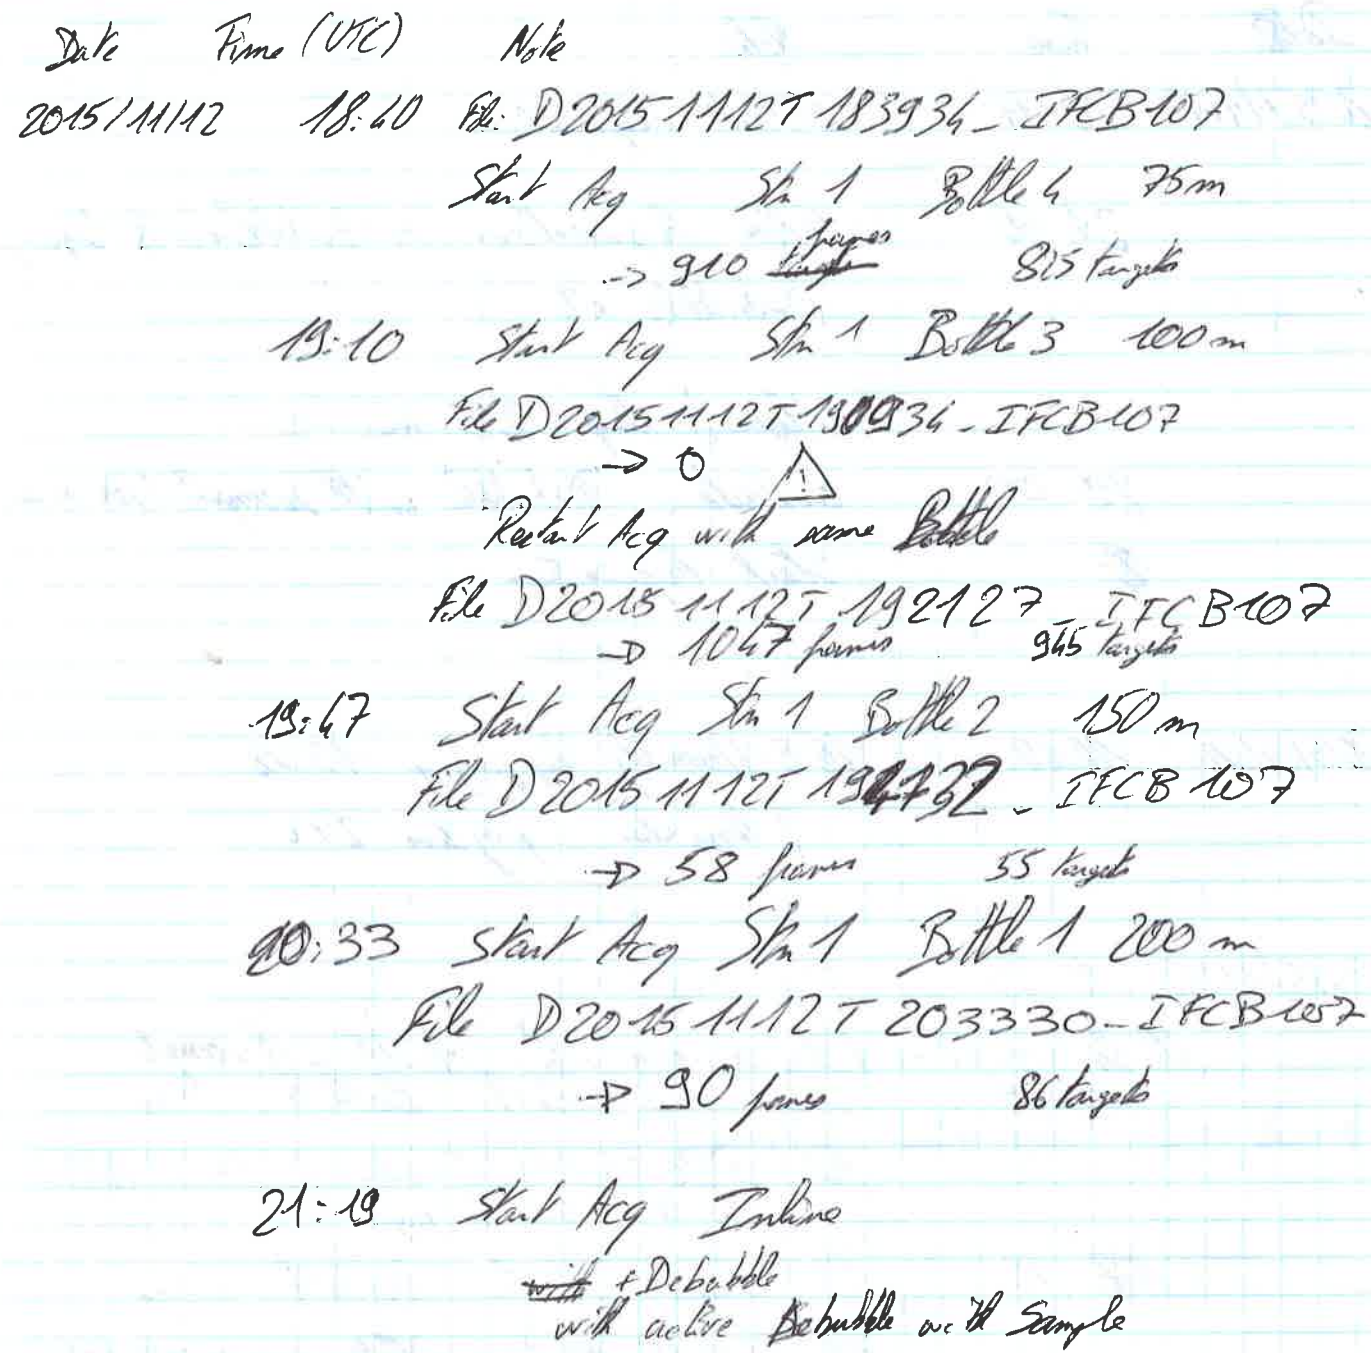 Date Time (UTC) Note
2015/11/12 18:40 File: D20151112T183934_IFCB107
Start Acq Stn 1 Bottle 4 75m
frames
-> 910 targets 825 targets
19:10 Start Acq Stn 1 Bottle 3 100m
File D20151112T190934_IFCB107
-> 0 ⚠
Restart Acq with same Bottle
File D20151112T192127_IFCB107
-> 1047 frames 945 targets
19:47 Start Acq Stn 1 Bottle 2 150m
File D20151112T194732_IFCB107
-> 58 frames 55 targets
20:33 Start Acq Stn 1 Bottle 1 200m
File D20151112T203330_IFCB107
-> 90 frames 86 targets
21:19 Start Acq Inline
with + Debubble
with active Debubble with Sample